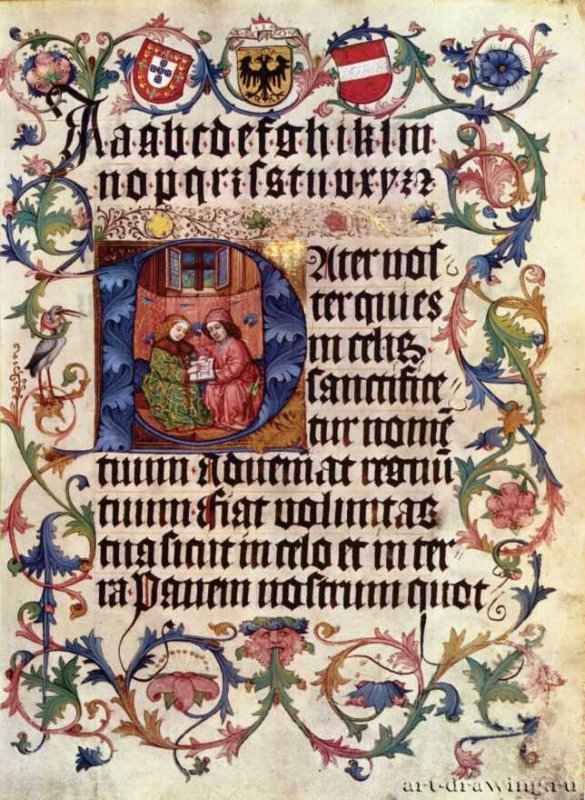 A a a b c d e f g h i k l m
n o p q r ꝛ ſ s t u v x y z ꝛ
PAter noſ
ter qui es
in celis
ſanctifice
tur nomē
tuum Adueniat regnū
tuum Fiat voluntas
tua ſicut in celo et in ter
ra Panem noſtrum quot
art-drawing.ru